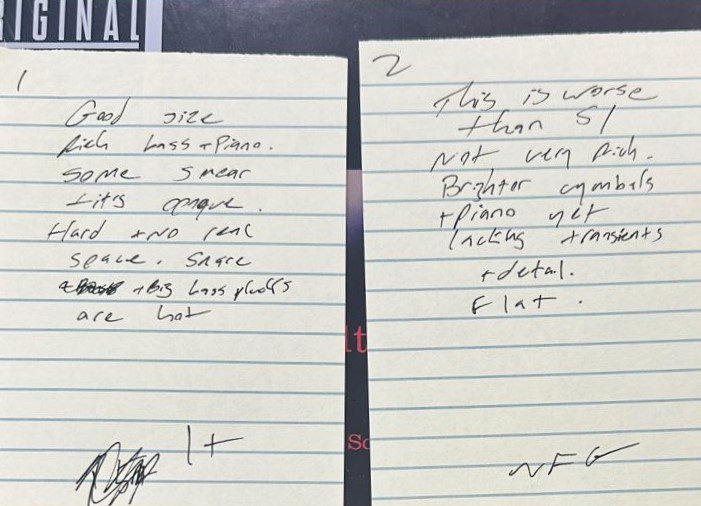 RIGINAL
1
Good size
Rich bass + Piano.
Some smear
+ it's opaque.
Hard + no real
space. Snare
+ Big bass plucks
are hot
1+
2
This is worse
than S1
Not very rich.
Brighter cymbals
+ piano yet
lacking transients
+ detail.
Flat.
NFG
lt
So